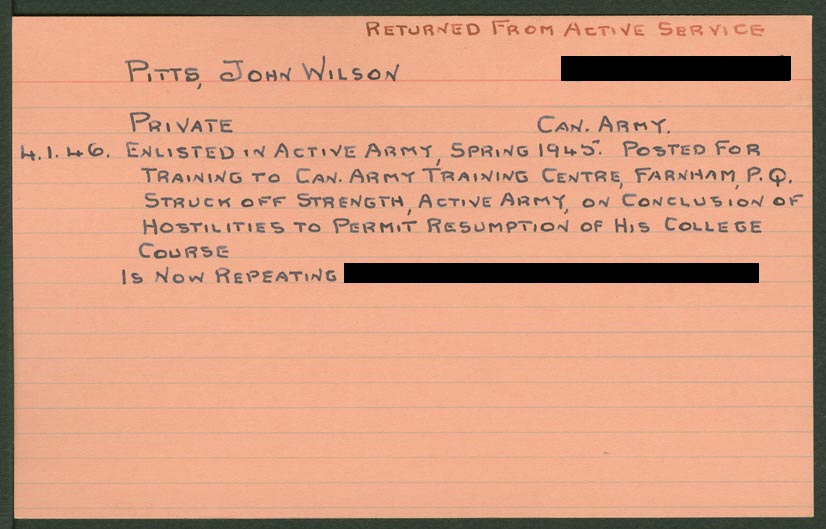 RETURNED FROM ACTIVE SERVICE
PITTS, JOHN WILSON
PRIVATE CAN. ARMY.
4.1.46. ENLISTED IN ACTIVE ARMY, SPRING 1945. POSTED FOR
TRAINING TO CAN. ARMY TRAINING CENTRE, FARNHAM, P.Q.
STRUCK OFF STRENGTH, ACTIVE ARMY, ON CONCLUSION OF
HOSTILITIES TO PERMIT RESUMPTION OF HIS COLLEGE
COURSE
IS NOW REPEATING